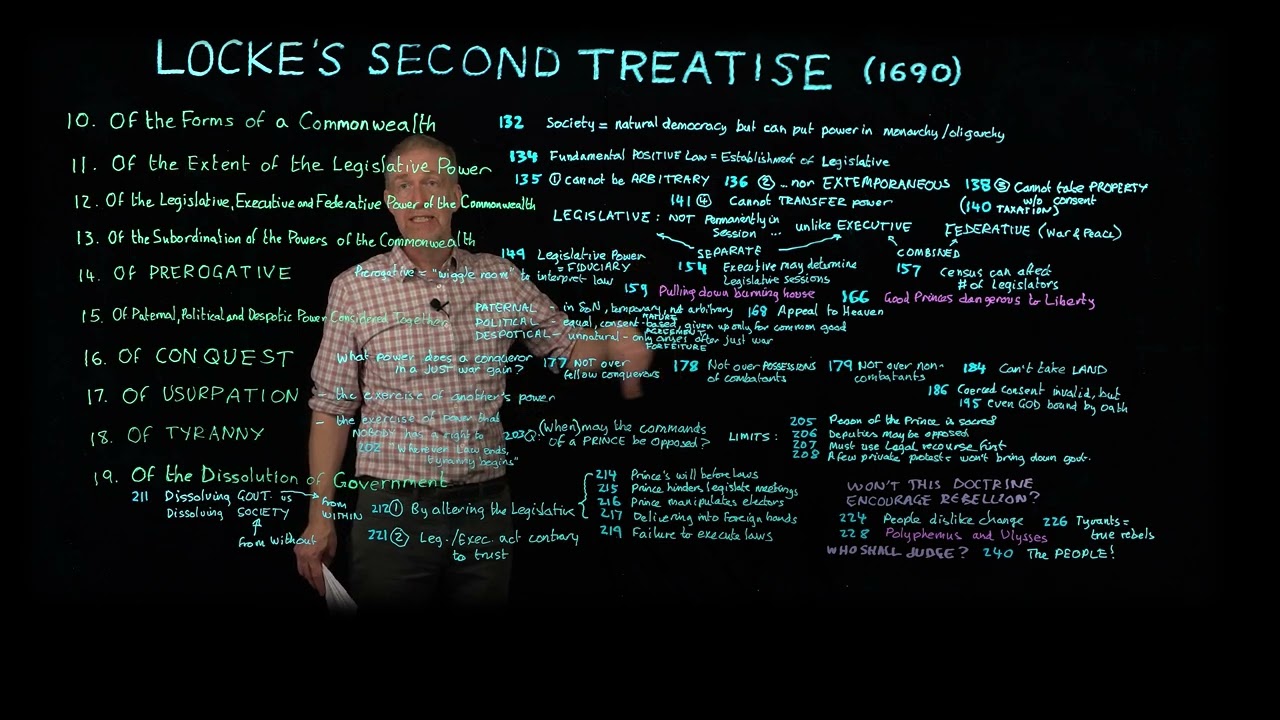 LOCKE'S SECOND TREATISE (1690)
10. Of the Forms of a Commonwealth
132 Society = natural democracy but can put power in monarchy/oligarchy
11. Of the Extent of the Legislative Power
134 Fundamental POSITIVE LAW = Establishment of Legislative
135 ① cannot be ARBITRARY 136 ② ... non EXTEMPORANEOUS 138 ③ Cannot take PROPERTY w/o consent
(140 TAXATION)
141 ④ Cannot TRANSFER power
12. Of the Legislative, Executive and Federative Power of the Commonwealth
LEGISLATIVE: NOT Permanently in Session ... unlike EXECUTIVE FEDERATIVE (War & Peace)
SEPARATE COMBINED
13. Of the Subordination of the Powers of the Commonwealth
149 Legislative Power = FIDUCIARY
154 Executive may determine Legislative sessions
157 census can affect # of Legislators
14. OF PREROGATIVE
Prerogative = "wiggle room" to interpret law
159 Pulling down burning house 166 Good Princes dangerous to Liberty
168 Appeal to Heaven
15. Of Paternal, Political and Despotic Power Considered Together
PATERNAL - in SoN, temporary, not arbitrary
NATURE
POLITICAL - equal, consent-based, given up only for common good
AGREEMENT
DESPOTICAL - unnatural - only arises after just war
FORFEITURE
16. OF CONQUEST
What power does a conqueror in a JUST war gain?
177 NOT over fellow conquerors
178 Not over POSSESSIONS of combatants
179 NOT over non-combatants
184 Can't take LAND
186 Coerced consent invalid, but
195 even GOD bound by oath
17. OF USURPATION - the exercise of another's power
18. OF TYRANNY
- the exercise of power that NOBODY has a right to
202 "Wherever Law ends, tyranny begins"
203 Q: (When) may the commands of a PRINCE be opposed?
LIMITS:
205 Person of the Prince is sacred
206 Deputies may be opposed
207 Must use Legal recourse first
208 A few private protests won't bring down govt.
19. Of the Dissolution of Government
211 Dissolving GOVT. vs Dissolving SOCIETY
from WITHIN
from without
212 ① By altering the Legislative
214 Prince's will before laws
215 Prince hinders legislate meetings
216 Prince manipulates electors
217 Delivering into Foreign hands
219 Failure to execute laws
221 ② Leg./Exec. act contrary to trust
WON'T THIS DOCTRINE ENCOURAGE REBELLION?
224 People dislike change 226 Tyrants = true rebels
228 Polyphemus and Ulysses
WHO SHALL JUDGE? 240 The PEOPLE!